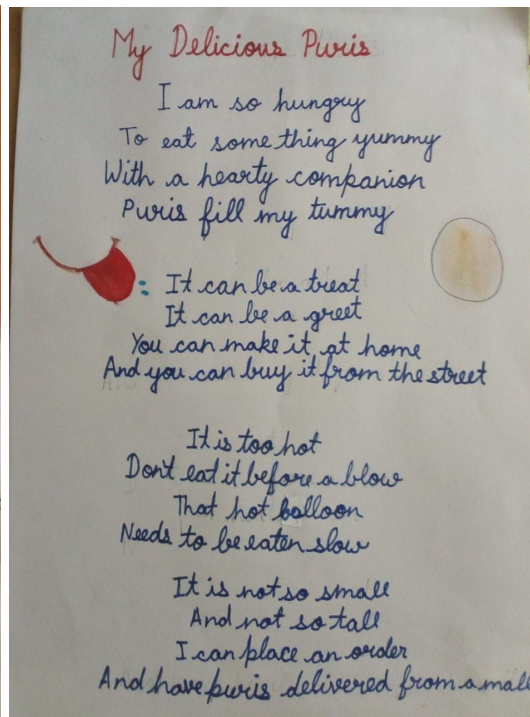 My Delicious Puris
I am so hungry
To eat something yummy
With a hearty companion
Puris fill my tummy
It can be a treat
It can be a greet
You can make it at home
And you can buy it from the street
It is too hot
Don't eat it before a blow
That hot balloon
Needs to be eaten slow
It is not so small
And not so tall
I can place an order
And have puris delivered from a mall